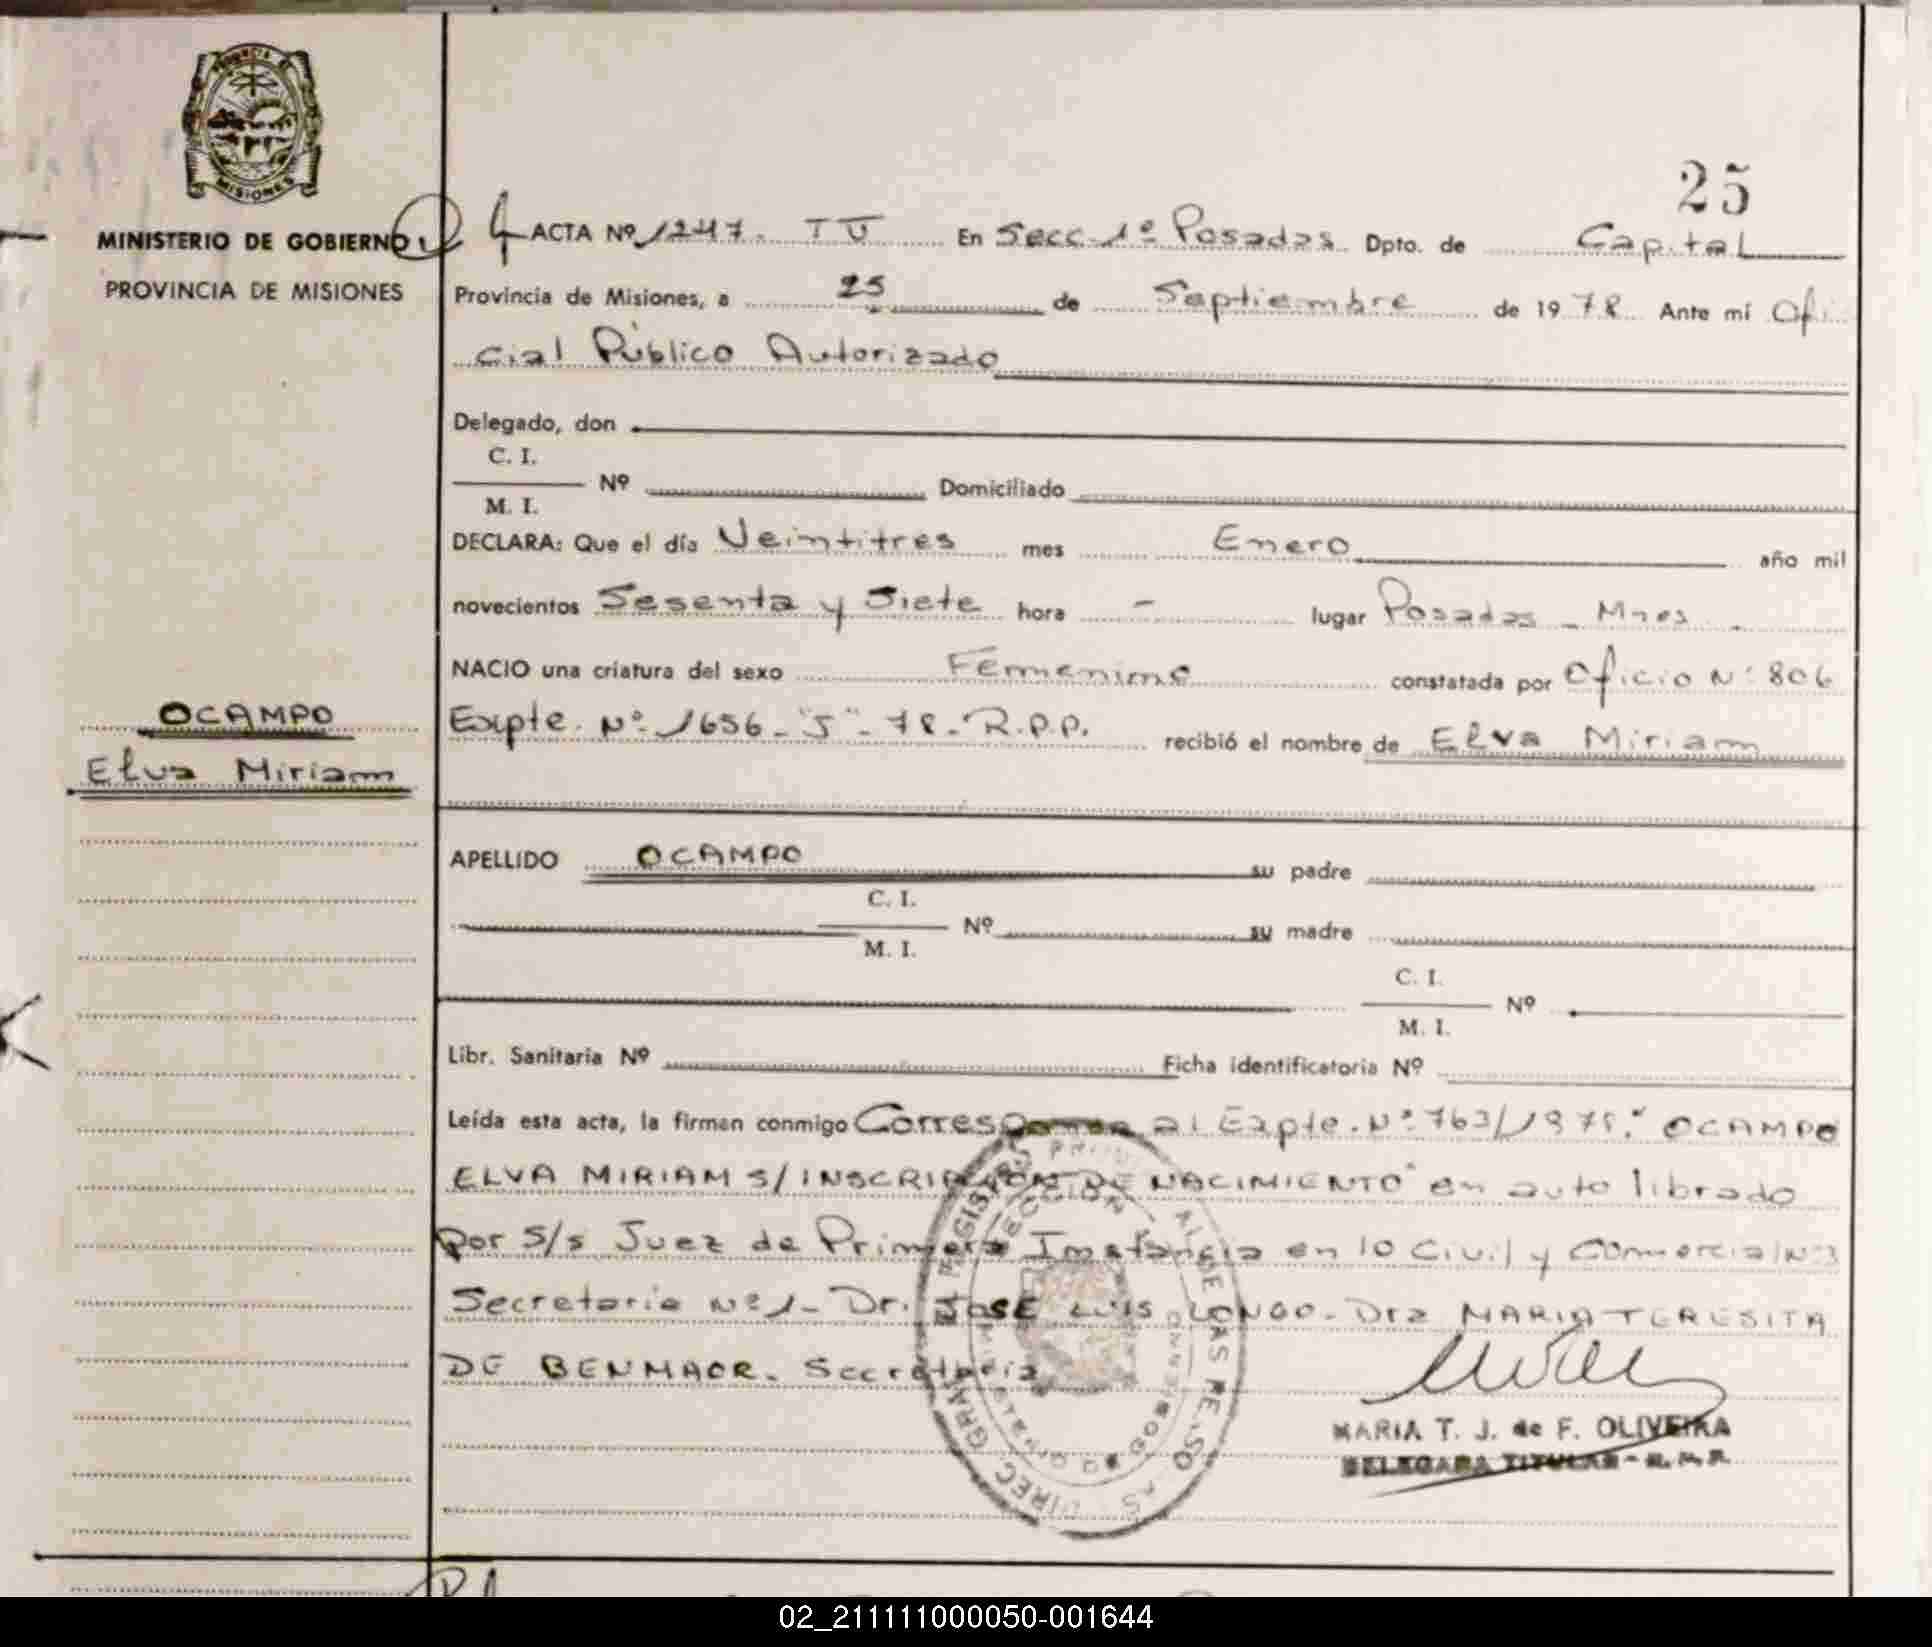 PROVINCIA DE
MISIONES
MINISTERIO DE GOBIERNO
PROVINCIA DE MISIONES
25
ACTA Nº 1247. TU En Secc. 1º Posadas Dpto. de Capital
Provincia de Misiones, a 25 de Septiembre de 1978 Ante mí Ofi
cial Público Autorizado
Delegado, don
C. I.
M. I. Nº Domiciliado
DECLARA: Que el día Veintitres mes Enero año mil
novecientos Sesenta y Siete hora - lugar Posadas - Mnes.
NACIO una criatura del sexo Femenino constatada por Oficio Nº 806
Expte. Nº 1656-"J"-78-R.P.P. recibió el nombre de Elva Miriam
OCAMPO
Elva Miriam
APELLIDO OCAMPO su padre
C. I.
M. I. Nº su madre
C. I.
M. I. Nº
Libr. Sanitaria Nº Ficha identificatoria Nº
Leída esta acta, la firman conmigo Corresponde al Expte. Nº 763/1978." OCAMPO
ELVA MIRIAM S/ INSCRIPCION DE NACIMIENTO" en auto librado
por S/s Juez de Primera Instancia en lo Civil y Comercial Nº 3
Secretaria Nº 1- Dr. JOSE LUIS LONGO. Dra MARIA TERESITA
DE BENMAOR. Secretaria
MARIA T. J. de F. OLIVEIRA
DELEGADA TITULAR - R. P. P.
02_211111000050-001644